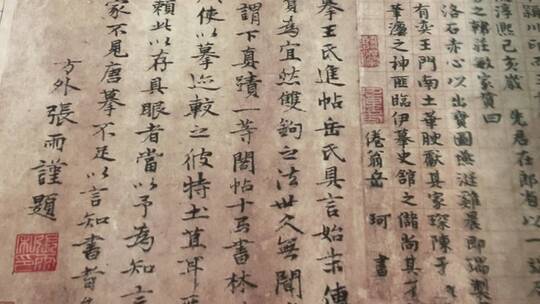 淳熙己亥歲 先君在郎省以一
之歸莊敏家寶曰
洛石赤心以出寶圖燕涎雞晨郎瑞
有奕王門南土華腴獻其家琛陳于
筆濡之神匪臨伊摹史館之儲尚其
倦翁岳珂書
摹王氏進帖岳氏具言始末傳
寶為宜然雙鉤之法世久無聞
謂下真蹟一等閣帖十百書林
使以摹迹較之彼特土苴耳
賴此以存具眼者當以予為知言
家不見唐摹不足以言知書者
方外張雨謹題